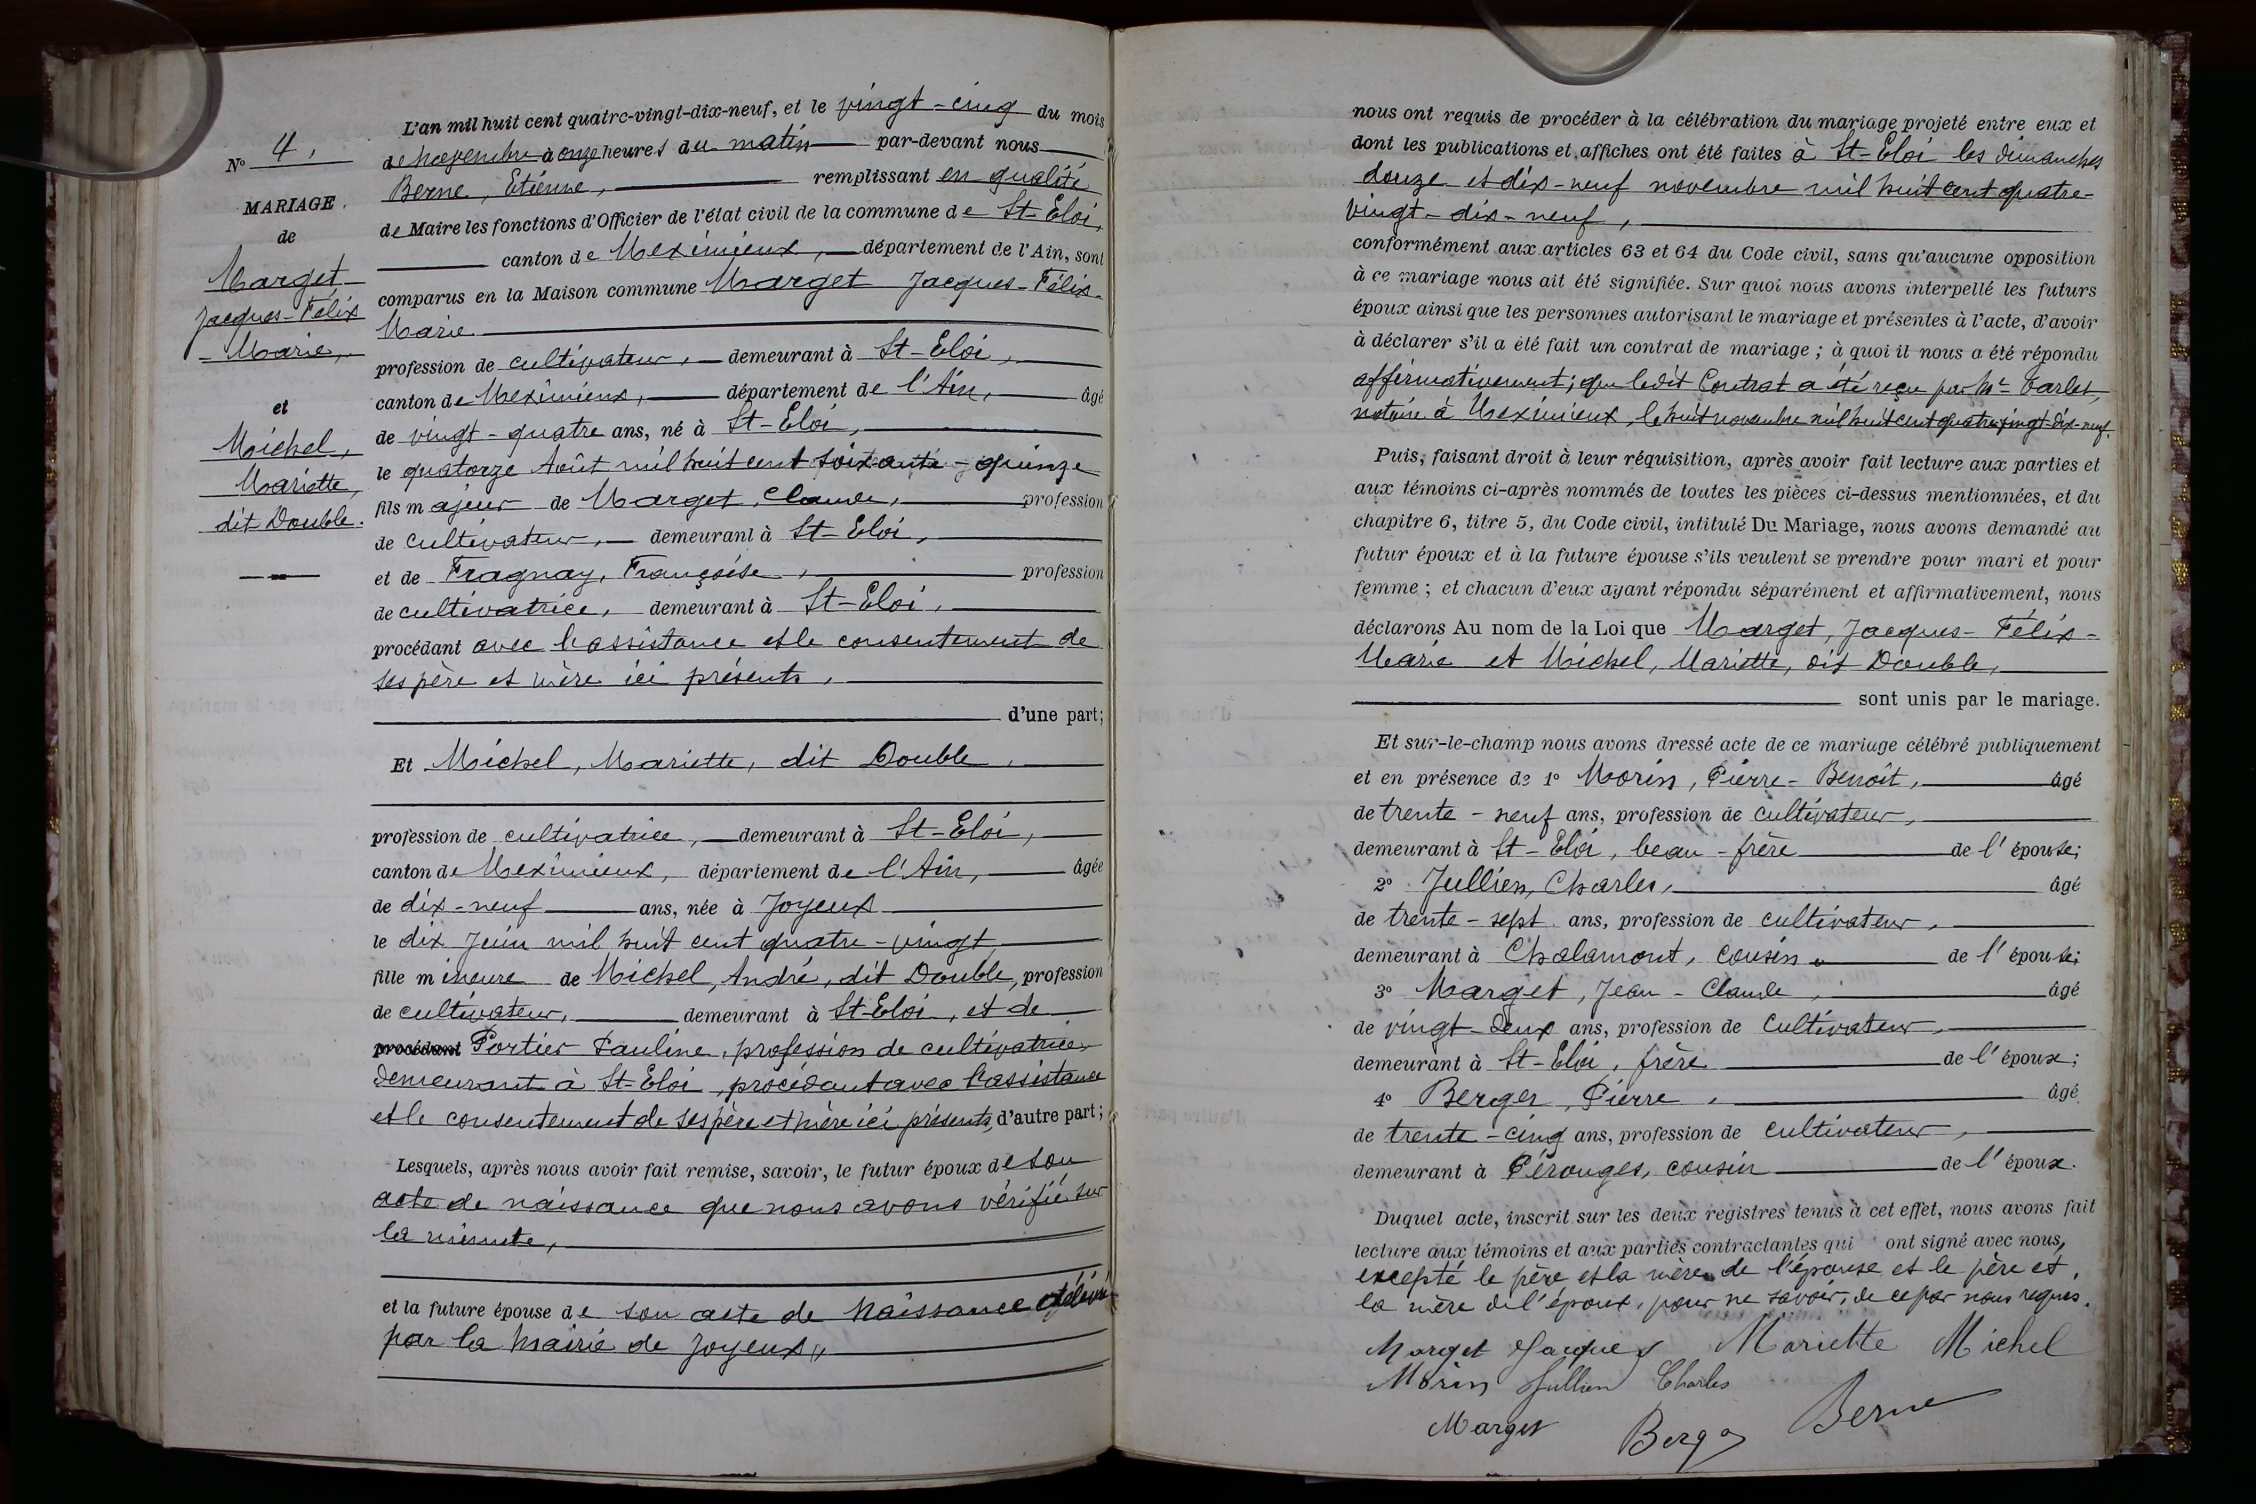 N° 4,
MARIAGE
de
Marget
Jacques-Félix
-Marie,
et
Michel,
Mariette,
dit Double.
L'an mil huit cent quatre-vingt-dix-neuf, et le vingt-cinq du mois
de novembre à onze heures du matin par-devant nous
Berne, Etienne, remplissant en qualité
de Maire les fonctions d'Officier de l'état civil de la commune de St-Eloi,
canton de Meximieux, département de l'Ain, sont
comparus en la Maison commune Marget Jacques-Félix-
Marie
profession de cultivateur, demeurant à St-Eloi,
canton de Meximieux, département de l'Ain, âgé
de vingt-quatre ans, né à St-Eloi,
le quatorze Août mil huit cent soixante-quinze
fils majeur de Marget, Claude, profession
de cultivateur, demeurant à St-Eloi,
et de Fragnay, Françoise, profession
de cultivatrice, demeurant à St-Eloi,
procédant avec l'assistance et le consentement de
ses père et mère ici présents,
d'une part;
Et Michel, Mariette, dit Double,
profession de cultivatrice, demeurant à St-Eloi,
canton de Meximieux, département de l'Ain, âgée
de dix-neuf ans, née à Joyeux
le dix Juin mil huit cent quatre-vingt,
fille mineure de Michel, André, dit Double, profession
de cultivateur, demeurant à St-Eloi, et de
procédant Portier Pauline, profession de cultivatrice,
demeurant à St-Eloi, procédant avec l'assistance
et le consentement de ses père et mère ici présents, d'autre part;
Lesquels, après nous avoir fait remise, savoir, le futur époux de son
acte de naissance que nous avons vérifié sur
la minute,
et la future épouse de son acte de naissance délivré
par la mairie de Joyeux,,
nous ont requis de procéder à la célébration du mariage projeté entre eux et
dont les publications et affiches ont été faites à St-Eloi les dimanches
douze et dix-neuf novembre mil huit cent quatre-
vingt-dix-neuf,
conformément aux articles 63 et 64 du Code civil, sans qu'aucune opposition
à ce mariage nous ait été signifiée. Sur quoi nous avons interpellé les futurs
époux ainsi que les personnes autorisant le mariage et présentes à l'acte, d'avoir
à déclarer s'il a été fait un contrat de mariage; à quoi il nous a été répondu
affirmativement; que ledit Contrat a été reçu par Me Varlet,
notaire à Meximieux, le huit novembre mil huit cent quatre vingt-dix-neuf.
Puis, faisant droit à leur réquisition, après avoir fait lecture aux parties et
aux témoins ci-après nommés de toutes les pièces ci-dessus mentionnées, et du
chapitre 6, titre 5, du Code civil, intitulé Du Mariage, nous avons demandé au
futur époux et à la future épouse s'ils veulent se prendre pour mari et pour
femme; et chacun d'eux ayant répondu séparément et affirmativement, nous
déclarons Au nom de la Loi que Marget, Jacques-Félix-
Marie et Michel, Mariette, dit Double,
sont unis par le mariage.
Et sur-le-champ nous avons dressé acte de ce mariage célébré publiquement
et en présence de 1° Morin, Pierre-Benoît, âgé
de trente-neuf ans, profession de cultivateur,
demeurant à St-Eloi, beau-frère de l'épouse;
2° Jullien, Charles, âgé
de trente-sept ans, profession de cultivateur,
demeurant à Chalamont, cousin de l'épouse;
3° Marget, Jean-Claude, âgé
de vingt-deux ans, profession de cultivateur,
demeurant à St-Eloi, frère de l'époux;
4° Berger, Pierre, âgé
de trente-cinq ans, profession de cultivateur,
demeurant à Pérouges, cousin de l'époux.
Duquel acte, inscrit sur les deux registres tenus à cet effet, nous avons fait
lecture aux témoins et aux parties contractantes qui ont signé avec nous,
excepté le père et la mère de l'épouse et le père et
la mère de l'époux, pour ne savoir, de ce par nous requis.
Marget Jacques Mariette Michel
Morin Jullien Charles
Marget Berger Berne